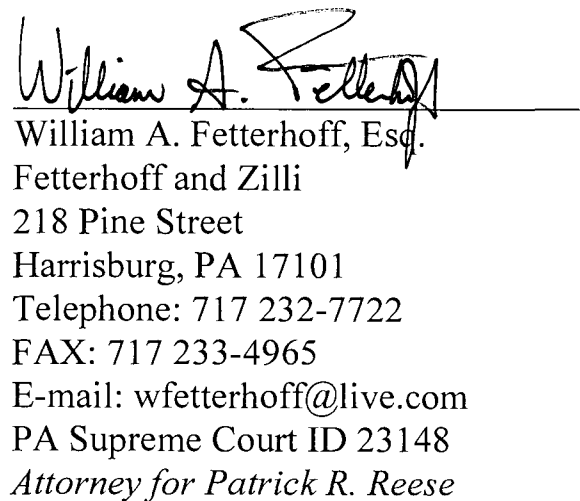 William A. Fetterhoff
William A. Fetterhoff, Esq.
Fetterhoff and Zilli
218 Pine Street
Harrisburg, PA 17101
Telephone: 717 232-7722
FAX: 717 233-4965
E-mail: wfetterhoff@live.com
PA Supreme Court ID 23148
Attorney for Patrick R. Reese